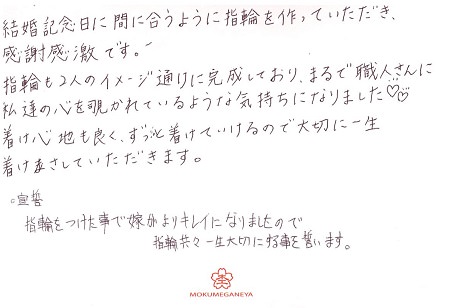 結婚記念日に間に合うように指輪を作っていただき、
感謝感激です。
指輪も2人のイメージ通りに完成しており、まるで職人さんに
私達の心を覗かれているような気持ちになりました♡♡
着け心地も良く、ずっと着けていけるので大切に一生
着けさせていただきます。
○宣誓
指輪をつけた事で嫁がよりキレイになりましたので
指輪共々一生大切にする事を誓います。
MOKUMEGANEYA